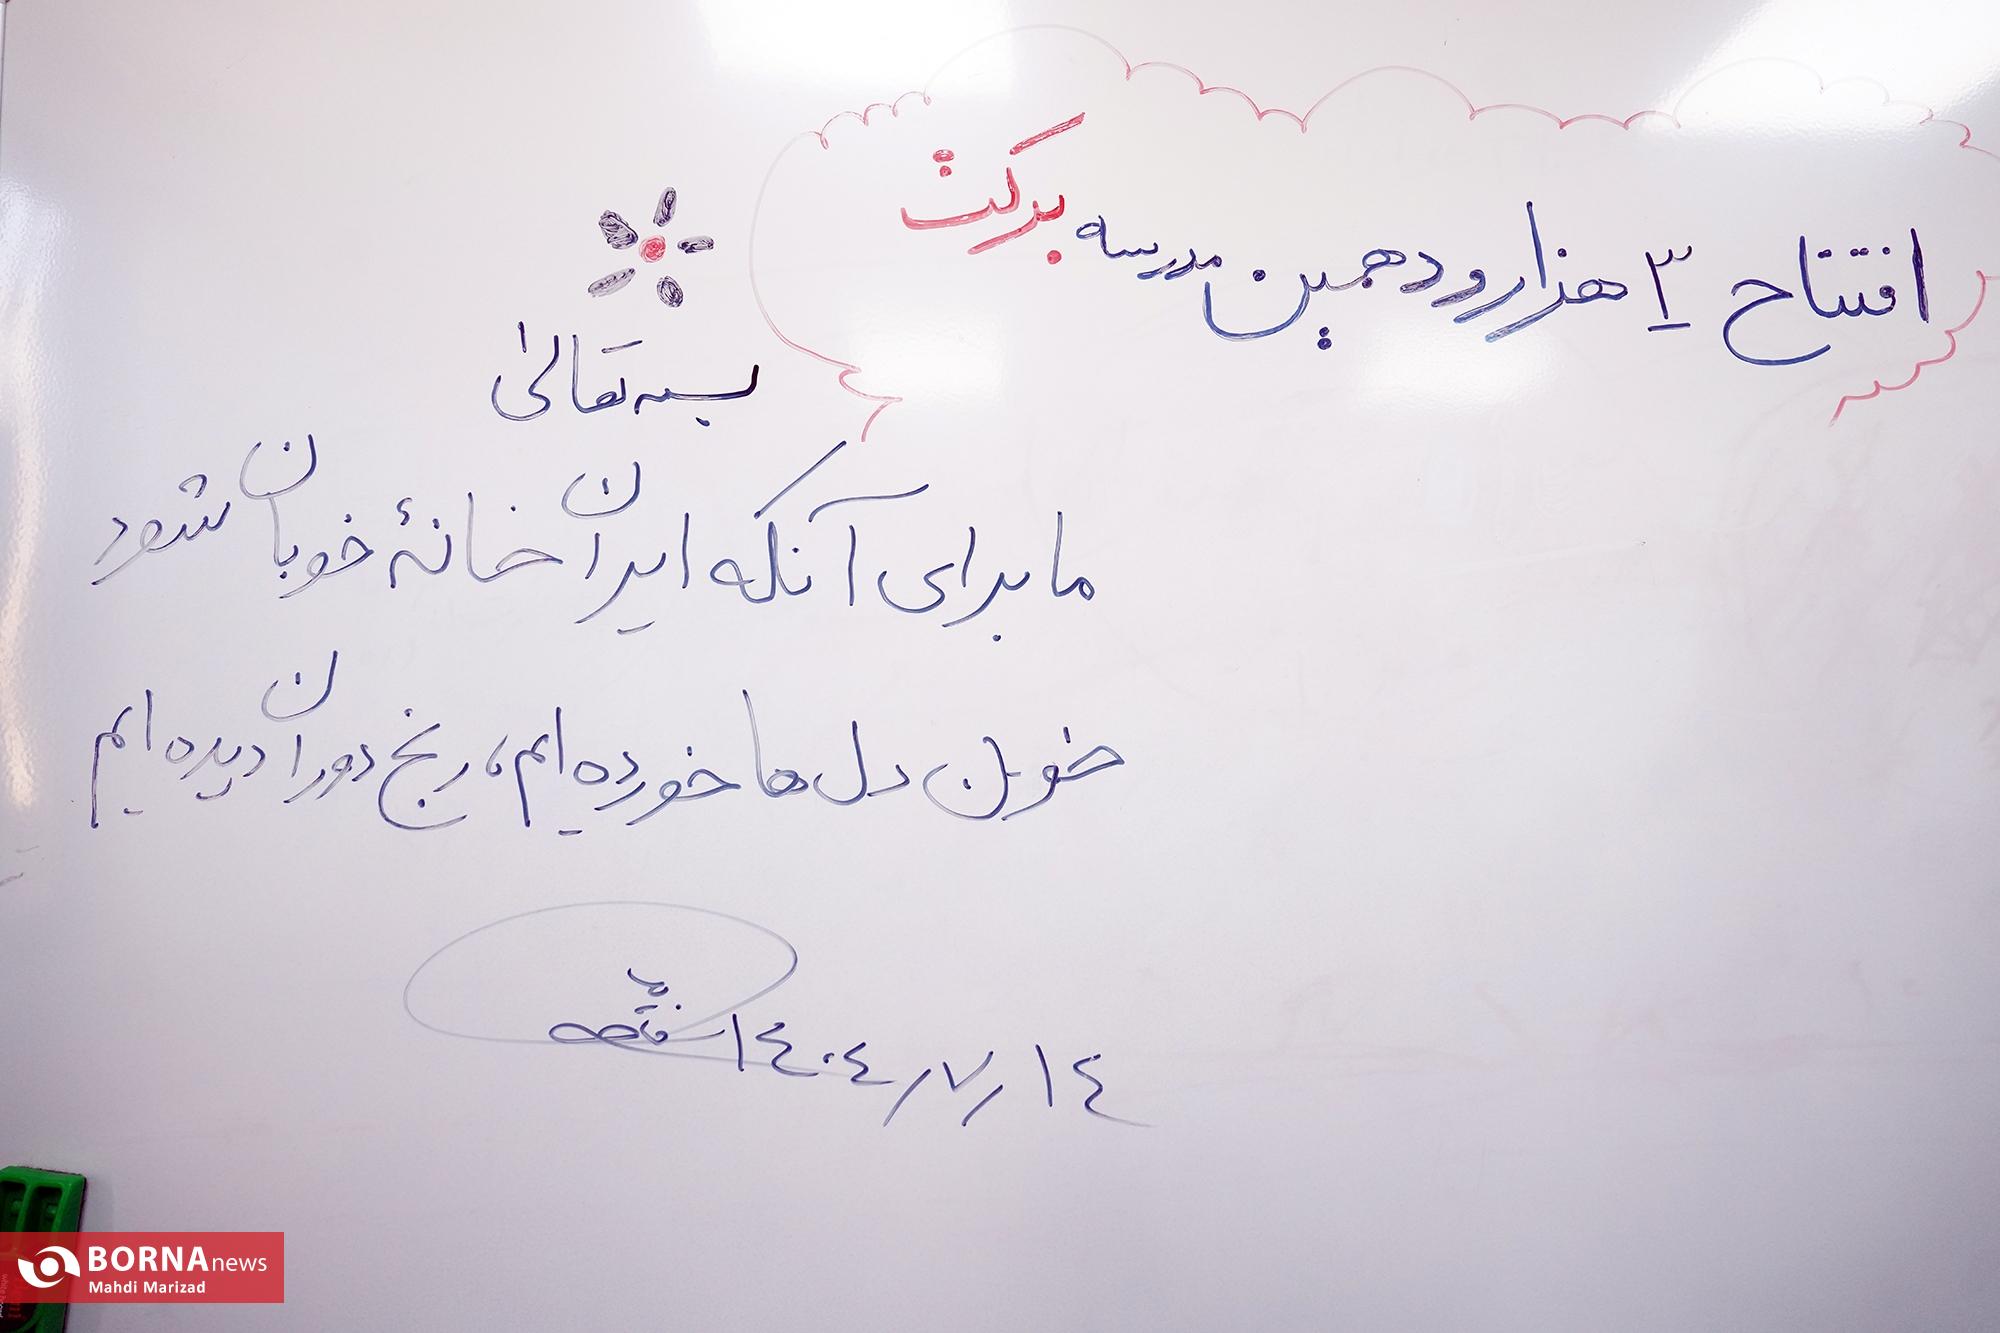 افتتاح ۳ هزار و دهمین مدرسه برکت
بسمه تعالی
ما برای آنکه ایران خانهٔ خوبان شود
خون دل ها خورده ایم، رنج دوران دیده ایم
۱۴۰۴/۷/۱۴
BORNA news
Mahdi Marizad